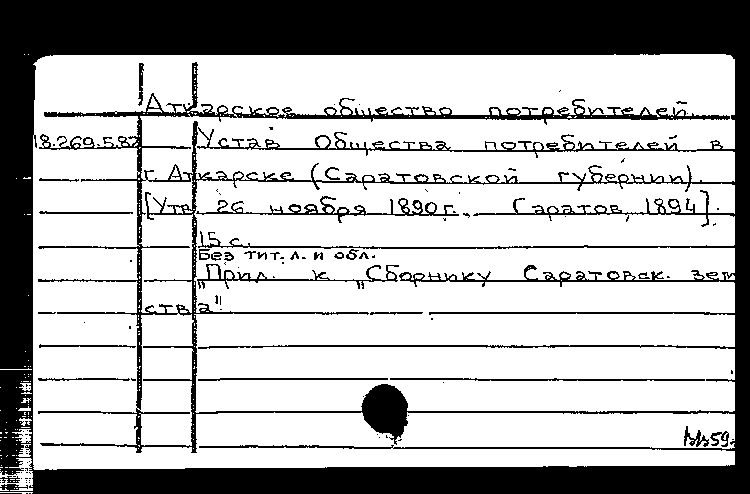 Аткарское общество потребителей.
18.269.582 Устав Общества потребителей в
г. Аткарске (Саратовской губернии).
[Утв. 26 ноября 1890 г. Саратов, 1894].
15 с.
Без тит. л. и обл.
„Прил. к „Сборнику Саратовск. зем
ства"